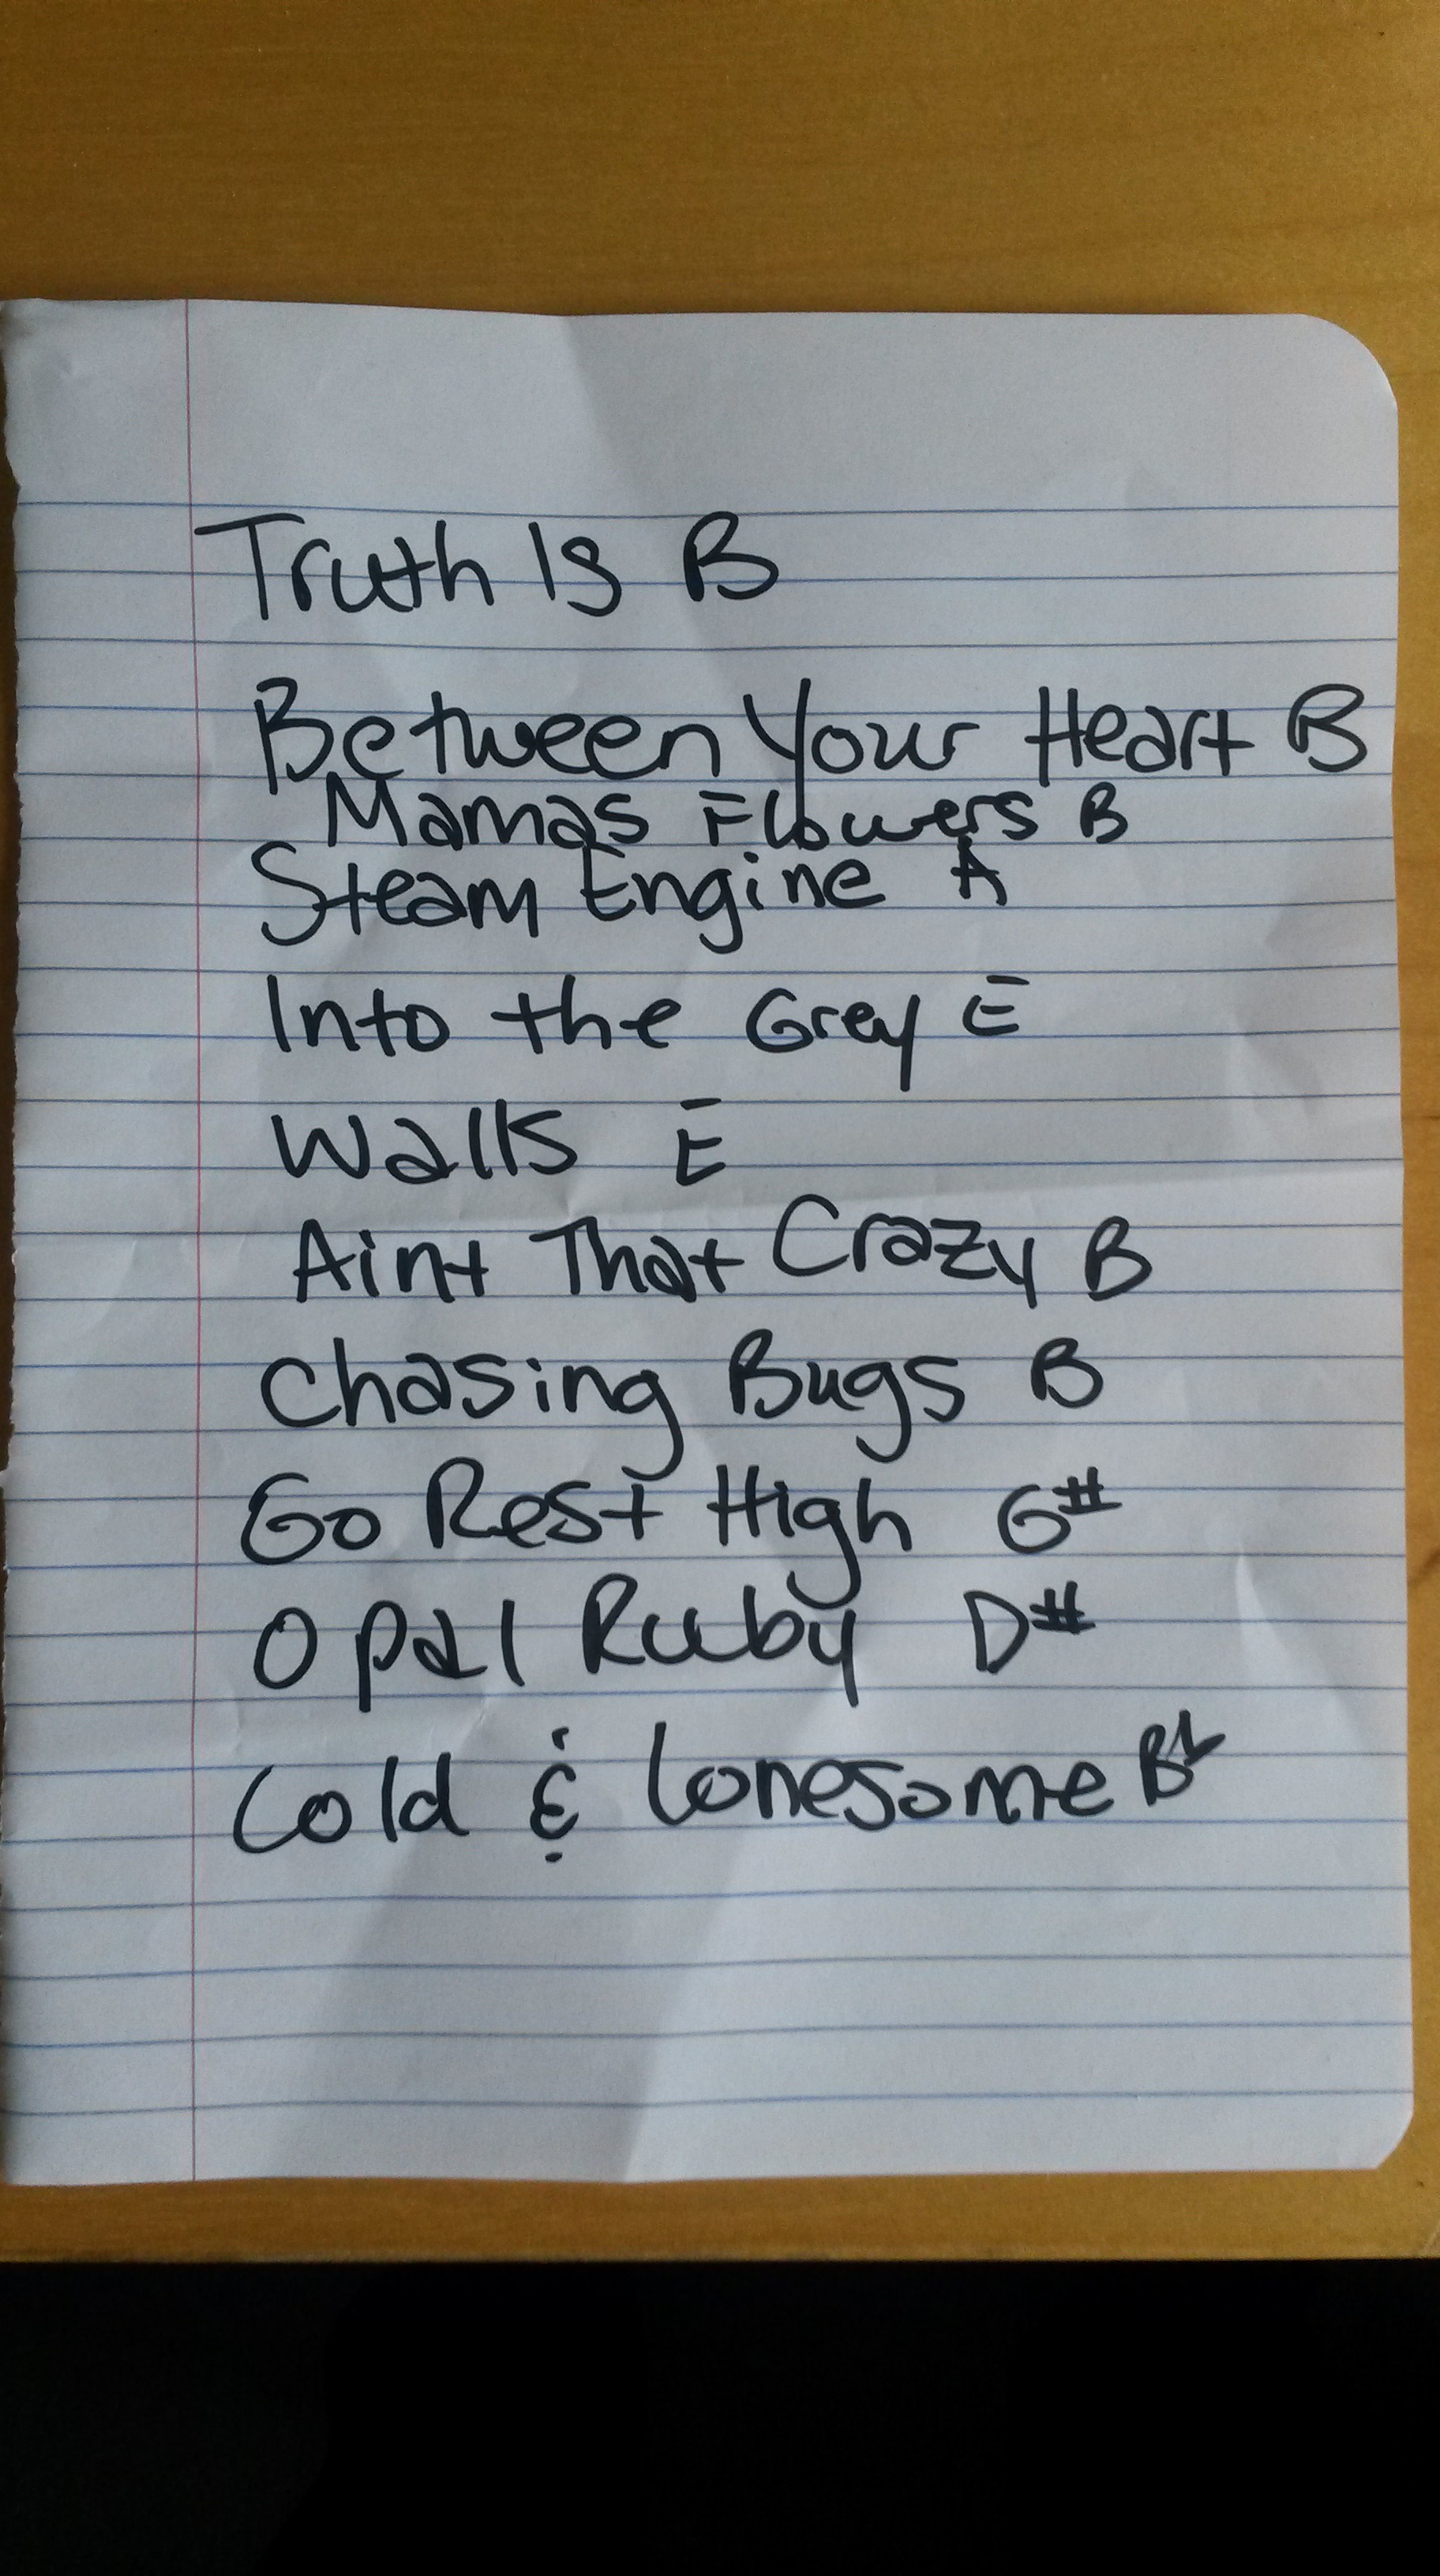 Truth Is B
Between Your Heart B
Mamas Flowers B
Steam Engine A
Into the Grey E
Walls E
Aint That Crazy B
Chasing Bugs B
Go Rest High G#
Opal Ruby D#
Cold & Lonesome Bb